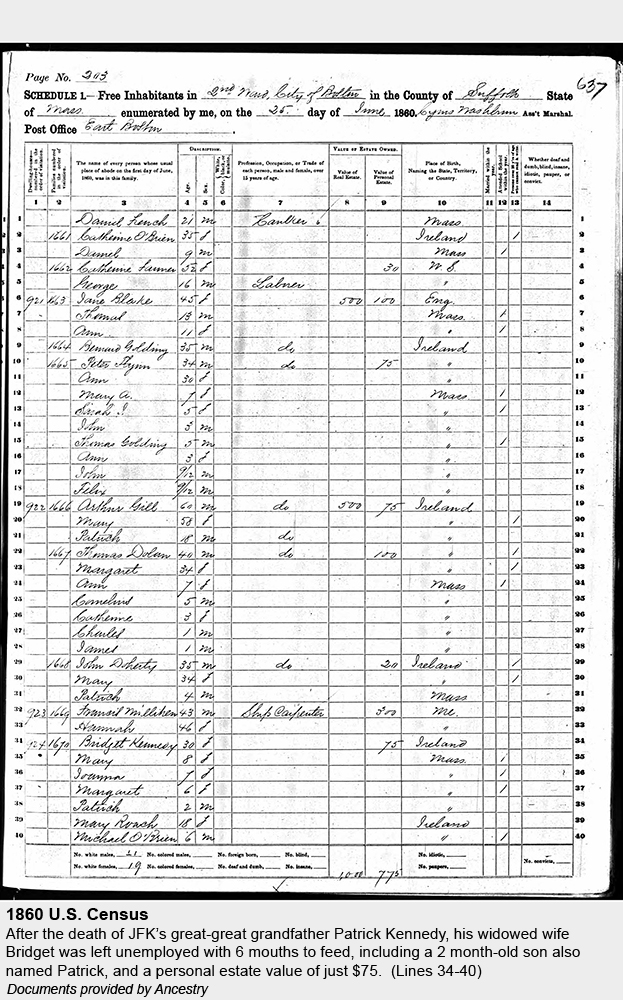 Page No. 203
SCHEDULE 1.—Free Inhabitants in 2nd Ward, City of Boston in the County of Suffolk State
637
of Mass enumerated by me, on the 25 day of June 1860. Cyrus Washburn Ass't Marshal.
Post Office East Boston.
DESCRIPTION. VALUE OF ESTATE OWNED.
The name of every person whose usual place of abode on the first day of June, 1860, was in this family.
Age. Sex.
Profession, Occupation, or Trade of each person, male and female, over 15 years of age.
Value of Real Estate. Value of Personal Estate.
Place of Birth, Naming the State, Territory, or Country.
Whether deaf and dumb, blind, insane, idiotic, pauper, or convict.
1 2 3 4 5 6 7 8 9 10 11 12 13 14
1 Daniel French 21 m Caulker Mass 1
2 1661 Catherine O'Brien 35 f Ireland / 2
3 Daniel 9 m Mass / 3
4 1662 Catherine 52 f 30 4
5 George 16 m Laborer " 5
6 921 1663 Jane Blake 45 f 500 100 Eng. 6
7 Thomas 13 m Mass / 7
8 Ann 11 f " / 8
9 1664 Bernard Golding 35 m do Ireland 9
10 1665 Peter Flynn 34 m do 75 " 10
11 Ann 30 f " 11
12 Mary A. 7 f Mass / 12
13 Sarah J. 5 f " / 13
14 John 3 m " 14
15 Thomas Golding 5 m " / 15
16 Ann 3 f " 16
17 John 9/12 m " 17
18 Felix 9/12 m " 18
19 922 1666 Arthur Gill 60 m do 500 75 Ireland 19
20 Mary 58 f " / 20
21 Patrick 18 m do " 21
22 1667 Thomas Dolan 40 m do 100 " / 22
23 Margaret 34 f " / 23
24 Ann 7 f Mass / 24
25 Cornelius 5 m " 25
26 Catherine 3 f " 26
27 Charles 1 m " 27
28 James 1 m " 28
29 1668 John Doherty 35 m do 20 Ireland / 29
30 Mary 34 f " / 30
31 Patrick 4 m Mass 31
32 923 1669 Milliken 43 m Ship Carpenter 300 Me. 32
33 Hannah 46 f " 33
34 924 1670 Bridget Kennedy 30 f 75 Ireland 34
35 Mary 8 f Mass / 35
36 Joanna 7 f " / 36
37 Margaret 6 f " / 37
38 Patrick 2 m " 38
39 Mary Roach 18 f Ireland 39
40 Michael O'Brien 6 m " / 40
No. white males, 21 No. colored males, No. foreign born, No. blind, No. idiotic, No. convicts,
No. white females, 19 No. colored females, No. deaf and dumb, No. insane, 1000 775 No. paupers,
1860 U.S. Census
After the death of JFK's great-great grandfather Patrick Kennedy, his widowed wife
Bridget was left unemployed with 6 mouths to feed, including a 2 month-old son also
named Patrick, and a personal estate value of just $75. (Lines 34-40)
Documents provided by Ancestry